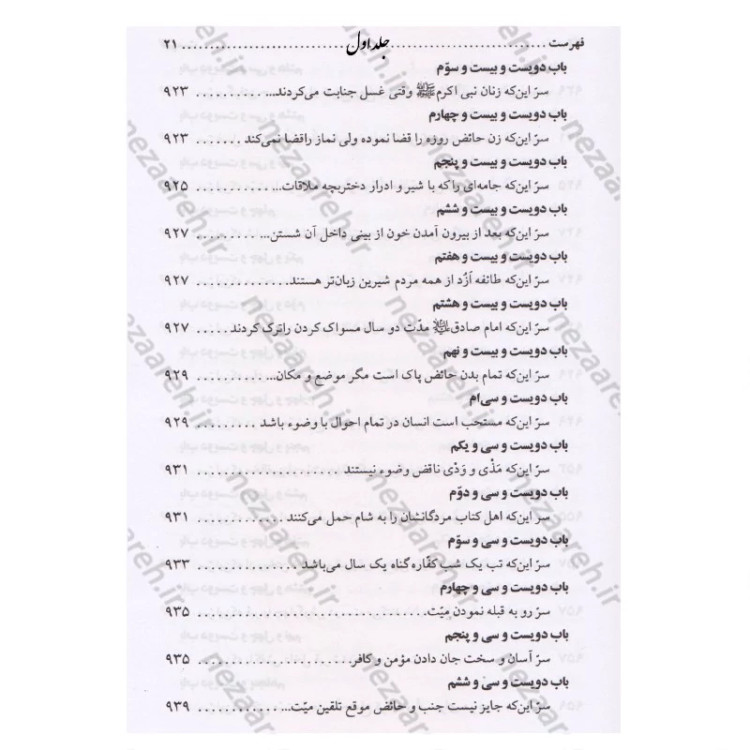 فهرست ........................ جلد اول ........................ ۲۱
باب دویست و بیست و سوّم
سرّ این‌که زنان نبی اکرم ﷺ وقتی غسل جنابت می‌کردند... .......... ۹۲۳
باب دویست و بیست و چهارم
سرّ این‌که زن حائض روزه را قضا نموده ولی نماز راقضا نمی‌کند ....... ۹۲۳
باب دویست و بیست و پنجم
سرّ این‌که جامه‌ای راکه با شیر و ادرار دختربچه ملاقات... ......... ۹۲۵
باب دویست و بیست و ششم
سرّ این‌که بعد از بیرون آمدن خون از بینی داخل آن شستن... .......... ۹۲۷
باب دویست و بیست و هفتم
سرّ این‌که طائفه اَزْد از همه مردم شیرین زبان‌تر هستند ............ ۹۲۷
باب دویست و بیست و هشتم
سرّ این‌که امام صادق مدّت دو سال مسواک کردن راترک کردند ...... ۹۲۷
باب دویست و بیست و نهم
سرّ این‌که تمام بدن حائض پاک است مگر موضع و مکان... ............ ۹۲۹
باب دویست و سی‌اُم
سرّ این‌که مستحب است انسان در تمام احوال با وضوء باشد .......... ۹۲۹
باب دویست و سی و یکم
سرّ این‌که مَذْی و وَدْی ناقض وضوء نیستند .................... ۹۳۱
باب دویست و سی و دوّم
سر این‌که اهل کتاب مردگانشان را به شام حمل می‌کنند .............. ۹۳۱
باب دویست و سی و سوّم
سرّ این‌که تب یک شب کفّاره گناه یک سال می‌باشد ................ ۹۳۳
باب دویست و سی و چهارم
سرّ رو به قبله نمودن میّت ........................... ۹۳۵
باب دویست و سی و پنجم
سرّ آسان و سخت جان دادن مؤمن و کافر ...................... ۹۳۵
باب دویست و سی و ششم
سرّ این‌که جایز نیست جنب و حائض موقع تلقین میّت... ............. ۹۳۹
nezaareh.ir